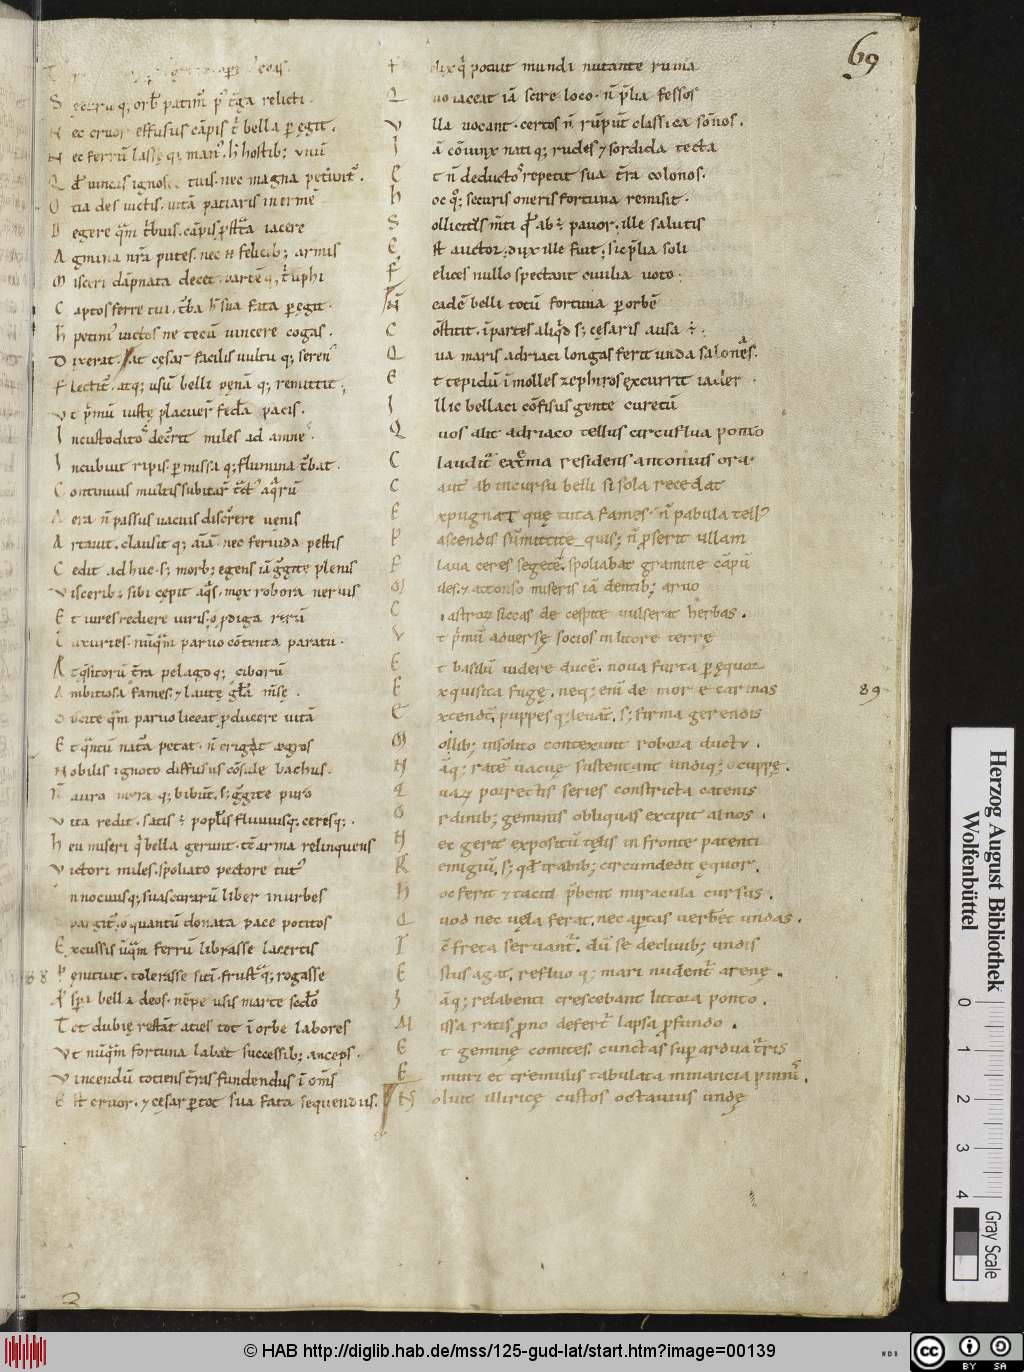 69
S
N ec cruor effusus cāpis t̄ bella ꝑegit.
N ec ferrū lassę q; man⁹. h̄ hostib; unū
Q d̄ uincis ignosc tuis. nec magna petunt᷑.
O tia des uictis. uitā patiaris inermē
D egere q̄m t̄buis. cāpis ꝓst̄ta iacere
A gmina nr̄a putes. nec n̄ felicib; armis
M isceri dāpnata decet. partē q; t̄uphi
C aptos ferre tui. t̄ba h̄ sua fata ꝑegit.
h petim⁹ uictos ne tecū uincere cogas.
D ixerat. at cęsar facilis uultu q; seren⁹
F lectit᷑. atq; usū belli pęnā q; remittit;
V t p̄mū iustę placuer̄ fed̄a pacis.
I ncustodito᷑ˢ dec̄rit miles ad amne.
I ncubuit ripis ꝑmissa q; flumina t̄bat.
C ontinuus multis subitar̄ t̄ct⁹ aq̄rū
A era n̄ passus uacuis disc̄rere uenis
A rtauit. clausit q; aīā. nec feruida pestis
C edit adhuc. s; morb; egens iā ḡgite plenis
V iscerib; sibi cępit aq̄s. mox robora neruis
E t uires rediere uiris. o ꝓdiga rerū
L uxuries. nūq̄m paruo cōtenta paratu.
E t q̄sitorū t̄ra pelago q; ciborū
A mbitiosa fames. ⁊ lautę gl̄a m̄sę.
D iscite q̄m paruo liceat ꝓducere uitā
E t q̄ntū nat᷑a petat. n̄ erigit ægros
N obilis ignoto diffusus cōsule bachus.
N̄ auro mirra q; bibūt. s; ḡgite puro
V ita redit. satis ē popl̄is fluuiusq; ceresq;.
h eu miseri q̄ bella gerunt. t̄c arma relinquens
V ictori miles. spoliato pectore tut⁹
I nnocuus q; suas curarū liber in urbes
S pargit᷑. o quantū donata pace potitos
E xcussis ūq̄m ferrū librasse lacertis
68 P ęnituit. tolerasse sitī. frust᷑a q; rogasse
ꝓspera bella deos. nēpe usis marte scd̄o
T ot dubię restāt acies tot ī orbe labores
V t nūq̄m fortuna labat successib; anceps.
V incendū totiens t̄ris fundendus ī om̄s
E st cruor. ⁊ cęsar ꝑ tot sua fata sequendus.
F elix q̄ potuit mundi nutante ruina
Q uo iaceat iā scire loco. n̄ p̄lia fessos
V lla uocant. certos n̄ rūpūt classica sōnos.
I ā cōiunx nati q; rudes ⁊ sordida tecta
E t n̄ deducto᷑ˢ repetit sua t̄ra colonos.
h oc q°; securis oneris fortuna remisit.
S ollicitis m̄ti q̄d abē pauor. ille salutis
E st auctor. dux ille fuit; sic p̄lia soli
F elices nullo spectant ciuilia uoto.
N̄ eadē belli totū fortuna ꝑ orbē
C ōstitit. ī partes aliq̄d s; cęsaris ausa ē.
Q ua maris adriaci longas ferit unda salones.
E t tepidū ī molles zephiros excurrit iader.
I llic bellaci cōfisus gente curetū
Q uos alit adriaco tellus circūflua ponto
C laudit᷑ ext̄ma residens antonius ora.
C aut᷑ ab incursu belli si sola recedat
E xpugnat quę tuta fames. n̄ pabula tell⁹
P ascendis sūmittite quis; n̄ ꝓserit ullam
F laua ceres segetē. spoliabat gramine cāpū
M iles. ⁊ attonso miseris iā dentib; aruo
C astrorū siccas de cespite uulserat herbas.
V t p̄mū aduersę socios in litore terrę
E t basilū uidere ducē. noua furta ꝑ ęquor
E xquisita fugę. neq; enī de more carinas 89
E xtendt̄. puppes q; leuāt. s; firma gerendis
M olib; insolito contexunt robora ductu.
N āq; ratē uacuę sustentant undiq; cuppę.
Q uarū porrectis series constricta catenis
O rdinib; geminis obliquas excipit alnos.
N ec gerit expositū telis in fronte patenti
R emigiū. s; qd̄ trabib; circumdedit ęquor.
h oc ferit ⁊ taciti p̄bent miracula cursus.
Q uod nec uela ferat. nec aptas uerberet undas.
T c̄ freta seruant᷑. dū se decliuib; undis
E stus agat. refluo q; mari nudent᷑ arenę.
I āq; relabenti crescebant littora ponto.
M issa ratis ꝓno defert᷑ lapsa ꝓfundo.
E t geminę comites. cunctas suꝑ ardua t᷑ris
E minet et tremulis tabulata minantia pinnis.
N oluit illiricę custos octauius undę
Herzog August Bibliothek
Wolfenbüttel
0 1 2 3 4
Gray Scale
© HAB http://diglib.hab.de/mss/125-gud-lat/start.htm?image=00139
WDB
CC BY SA